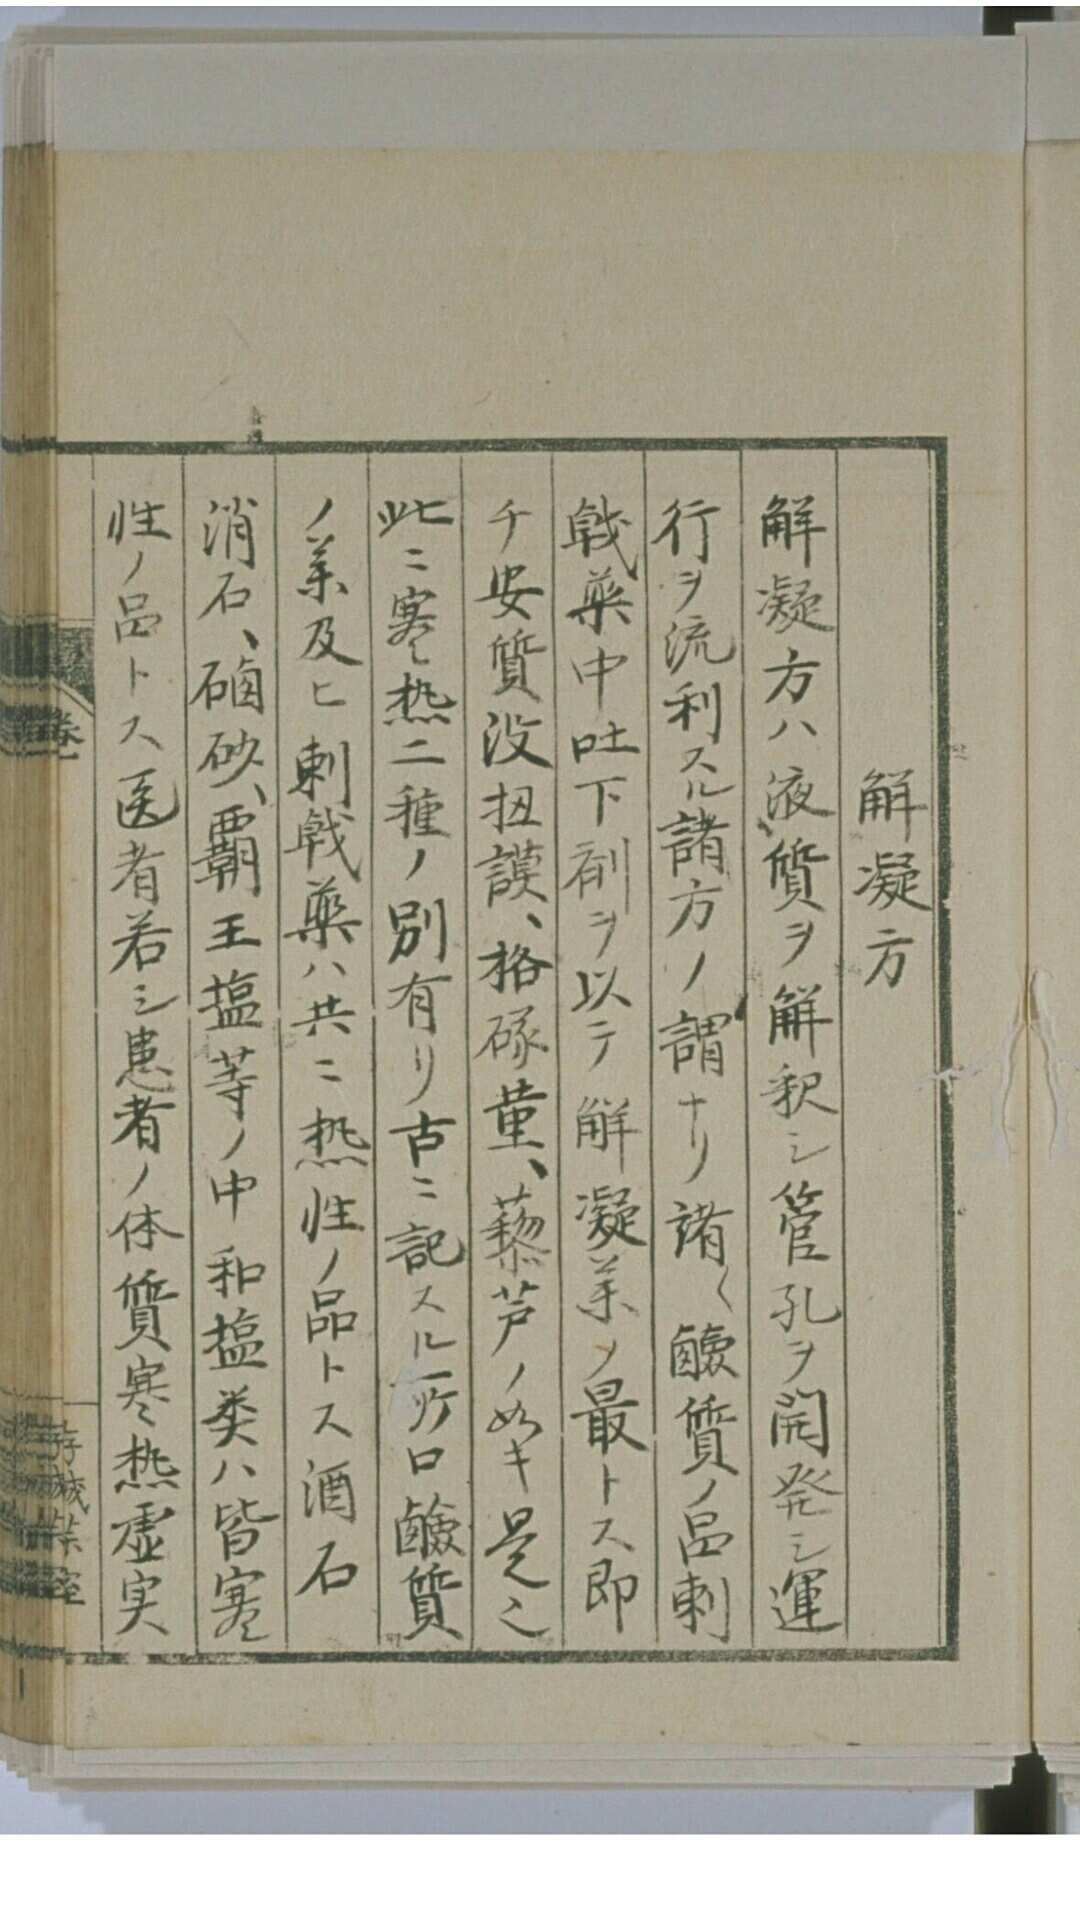 解凝方
解凝方ハ液質ヲ解釈シ管孔ヲ開発シ運
行ヲ流利スル諸方ノ謂ナリ諸〱鹼質ノ品刺
戟薬中吐下剤ヲ以テ解凝薬ノ最トス即
チ安質没扭謨、格碌菫、藜芦ノ如キ是也
此ニ寒热二種ノ別有リ古ニ記スル所ロ鹼質
ノ薬及ヒ刺戟薬ハ共ニ热性ノ品トス酒石
消石、硇砂、覇王塩等ノ中和塩类ハ皆寒
性ノ品トス医者若シ患者ノ体質寒热虚実
巻一